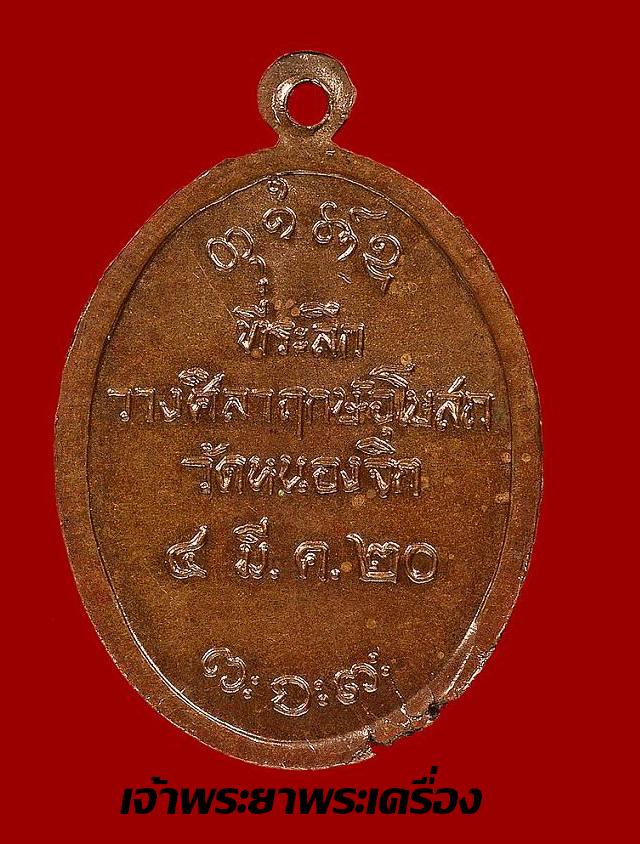 ที่ระลึก
วางศิลาฤกษ์อุโบสถ
วัดหนองจิก
๔ มี.ค.๒๐
เจ้าพระยาพระเครื่อง